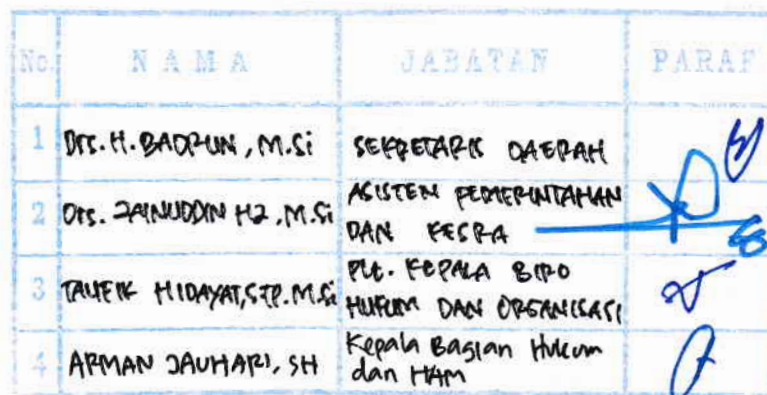 No. N A M A JABATAN PARAF
1 Drs. H. BADRUN, M.Si SEKRETARIS DAERAH
2 Drs. ZAINUDDIN HZ, M.Si ASISTEN PEMERINTAHAN
DAN KESRA
3 TAUFIK HIDAYAT, STP. M.Si PLt. KEPALA BIRO
HUKUM DAN ORGANISASI
4 ARMAN JAUHARI, SH Kepala Bagian Hukum
dan HAM